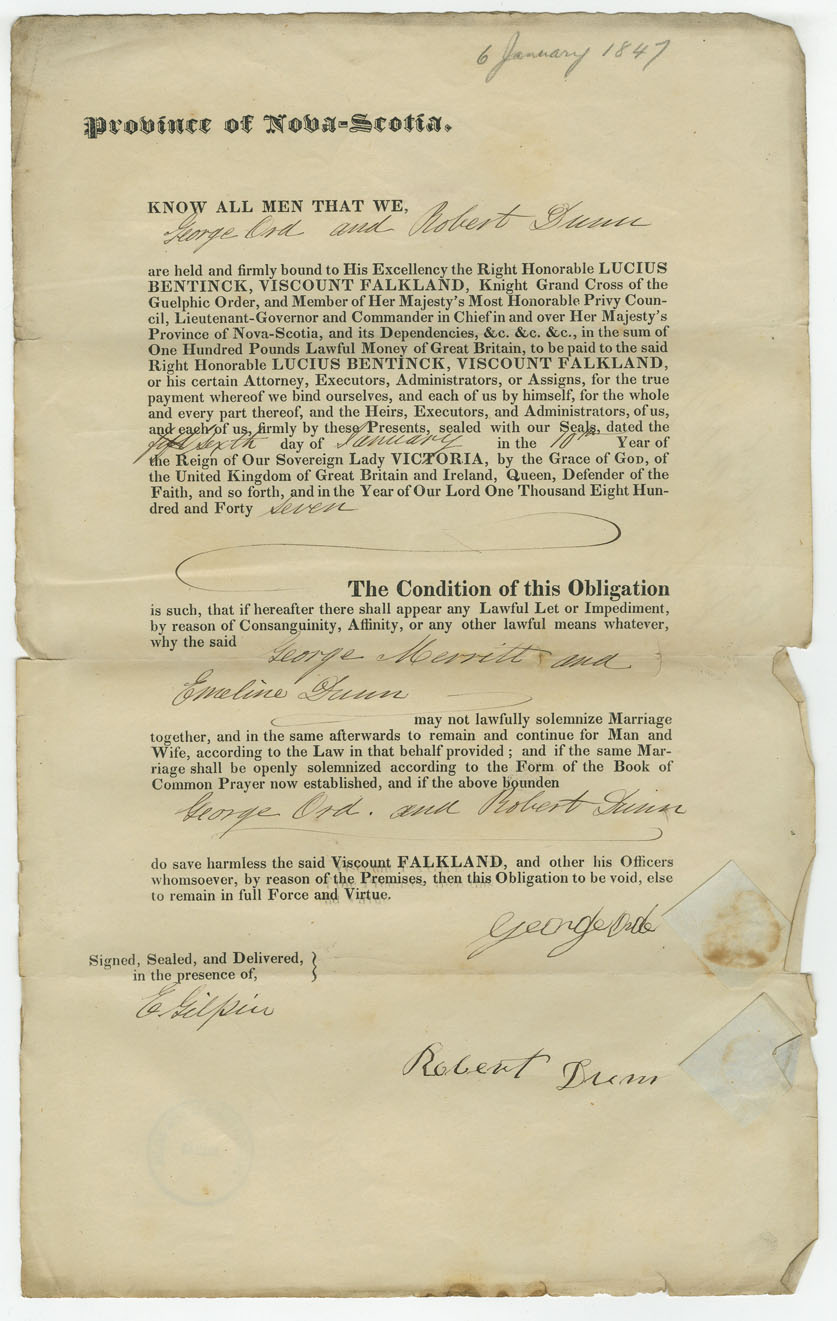 6 January 1847
Province of Nova-Scotia.
KNOW ALL MEN THAT WE,
George Ord and Robert Dunn
are held and firmly bound to His Excellency the Right Honorable LUCIUS
BENTINCK, VISCOUNT FALKLAND, Knight Grand Cross of the
Guelphic Order, and Member of Her Majesty's Most Honorable Privy Coun-
cil, Lieutenant-Governor and Commander in Chief in and over Her Majesty's
Province of Nova-Scotia, and its Dependencies, &c. &c. &c., in the sum of
One Hundred Pounds Lawful Money of Great Britain, to be paid to the said
Right Honorable LUCIUS BENTINCK, VISCOUNT FALKLAND,
or his certain Attorney, Executors, Administrators, or Assigns, for the true
payment whereof we bind ourselves, and each of us by himself, for the whole
and every part thereof, and the Heirs, Executors, and Administrators, of us,
and each of us, firmly by these Presents, sealed with our Seals, dated the
sixth day of January in the 10th Year of
the Reign of Our Sovereign Lady VICTORIA, by the Grace of GOD, of
the United Kingdom of Great Britain and Ireland, Queen, Defender of the
Faith, and so forth, and in the Year of Our Lord One Thousand Eight Hun-
dred and Forty seven
The Condition of this Obligation
is such, that if hereafter there shall appear any Lawful Let or Impediment,
by reason of Consanguinity, Affinity, or any other lawful means whatever,
why the said
George Merritt and
Emeline Dunn
may not lawfully solemnize Marriage
together, and in the same afterwards to remain and continue for Man and
Wife, according to the Law in that behalf provided ; and if the same Mar-
riage shall be openly solemnized according to the Form of the Book of
Common Prayer now established, and if the above bounden
George Ord. and Robert Dunn
do save harmless the said Viscount FALKLAND, and other his Officers
whomsoever, by reason of the Premises, then this Obligation to be void, else
to remain in full Force and Virtue.
George Orde
Signed, Sealed, and Delivered, }
in the presence of,
E Gilpin
Robert Dunn